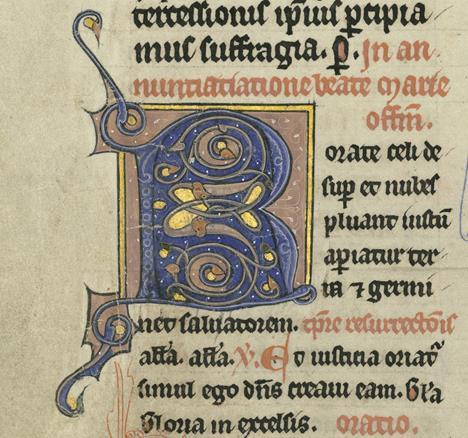 tercessionis ip̄ius ꝑcipia
mus suffragia. ꝑ. In an
nuntiatiatione beate Marie
offm̄.
Rorate celi de
suꝑ et nubes
pluant iustū
aꝑiatur ter
ra ⁊ germi
net saluatorem. tp̄re resurrectōis
all̄a. all̄a. V. Et iusticia oriat᷑
simul ego dn̄s creaui eam. Gl̄a
Gloria in excelsis. oratio.